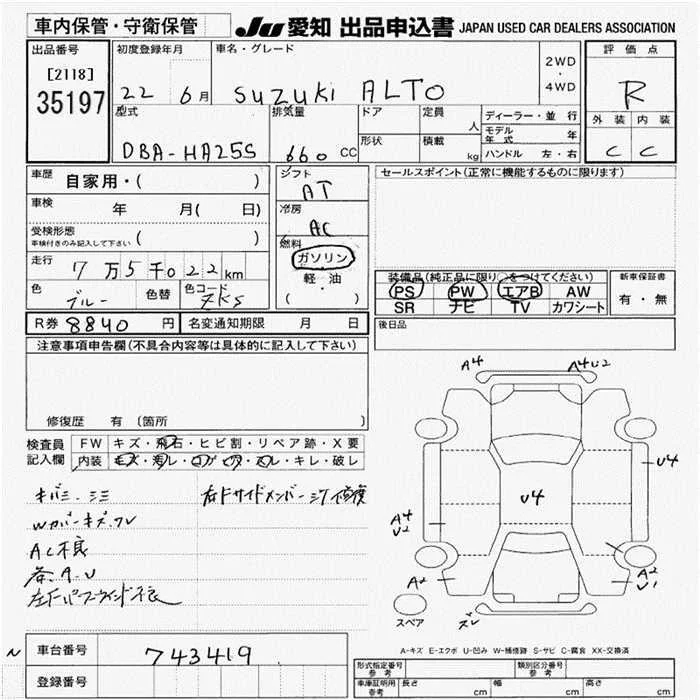 車内保管・守衛保管
JU 愛知 出品申込書 JAPAN USED CAR DEALERS ASSOCIATION
出品番号
[2118]
35197
初度登録年月
22 6月
車名・グレード
SUZUKI ALTO
2WD
・
4WD
評価点
R
型式
DBA-HA25S
排気量
660 CC
ドア
定員
人
形状
積載
kg
ディーラー・並行
モデル年式 年
ハンドル 左・右
外装 内装
C C
車歴 自家用・( )
車検 年 月( 日)
受検形態
車検付きのみ記入して下さい ( )
走行 7万5千022km
色 ブルー 色替 色コード ZKS
シフト
AT
冷房
AC
燃料
ガソリン
軽・油
( ・ )
R券 8840 円
名変通知期限 月 日
セールスポイント(正常に機能するものに限ります)
装備品(純正品に限り○をつけてください)
PS PW エアB AW
SR ナビ TV カワシート
新車保証書
有・無
後日品
注意事項申告欄(不具合内容等は具体的に記入して下さい)
修復歴 有 〔箇所 〕
検査員
記入欄
FW キズ・飛石・ヒビ割・リペア跡・X要
内装 キズ・汚レ・コゲ・穴・スレ・キレ・破レ
キバミ・シミ
Wカバーキズ、ワレ
AC不良
各A.U
左Fパワーウインド不良
右Fサイドメンバー
修復
A4
A4U2
U4
U4
A4
U2
A2
A2
U1
ズレ
スペア
A-キズ E-エクボ U-凹み W-補修跡 S-サビ C-腐食 XX-交換済
車台番号 743419
登録番号
形式指定番号
参考
類別区分番号
参考
車庫証明用
参考
長さ cm 幅 cm 高さ cm